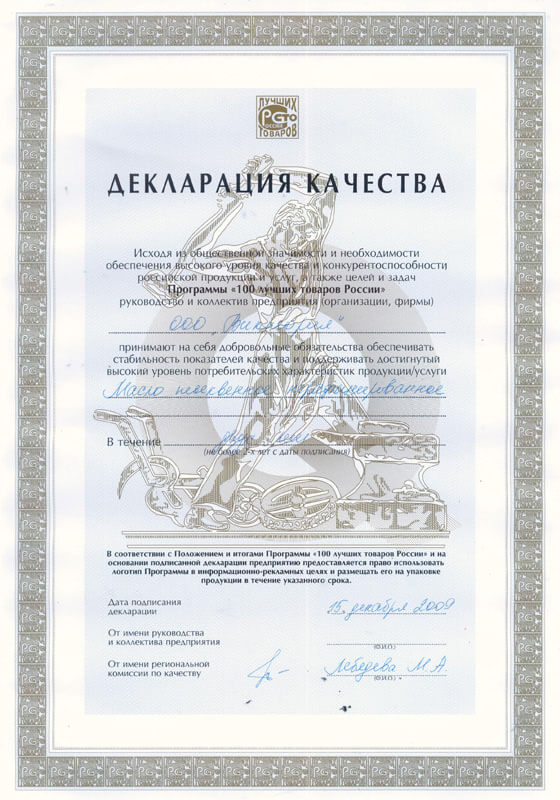 ЛУЧШИХ
СТО
ТОВАРОВ
ДЕКЛАРАЦИЯ КАЧЕСТВА
Исходя из общественной значимости и необходимости
обеспечения высокого уровня качества и конкурентоспособности
российской продукции и услуг, а также целей и задач
Программы «100 лучших товаров России»
руководство и коллектив предприятия (организации, фирмы)
ООО
принимают на себя добровольные обязательства обеспечивать
стабильность показателей качества и поддерживать достигнутый
высокий уровень потребительских характеристик продукции/услуги
Масло нерафинированное
В течение двух лет
(не более 2-х лет с даты подписания)
В соответствии с Положением и итогами Программы «100 лучших товаров России» и на
основании подписанной декларации предприятию предоставляется право использовать
логотип Программы в информационно-рекламных целях и размещать его на упаковке
продукции в течение указанного срока.
Дата подписания
декларации 15 декабря 2009
От имени руководства
и коллектива предприятия
(Ф.И.О.)
От имени региональной
комиссии по качеству Лебедева М.А.
(Ф.И.О.)